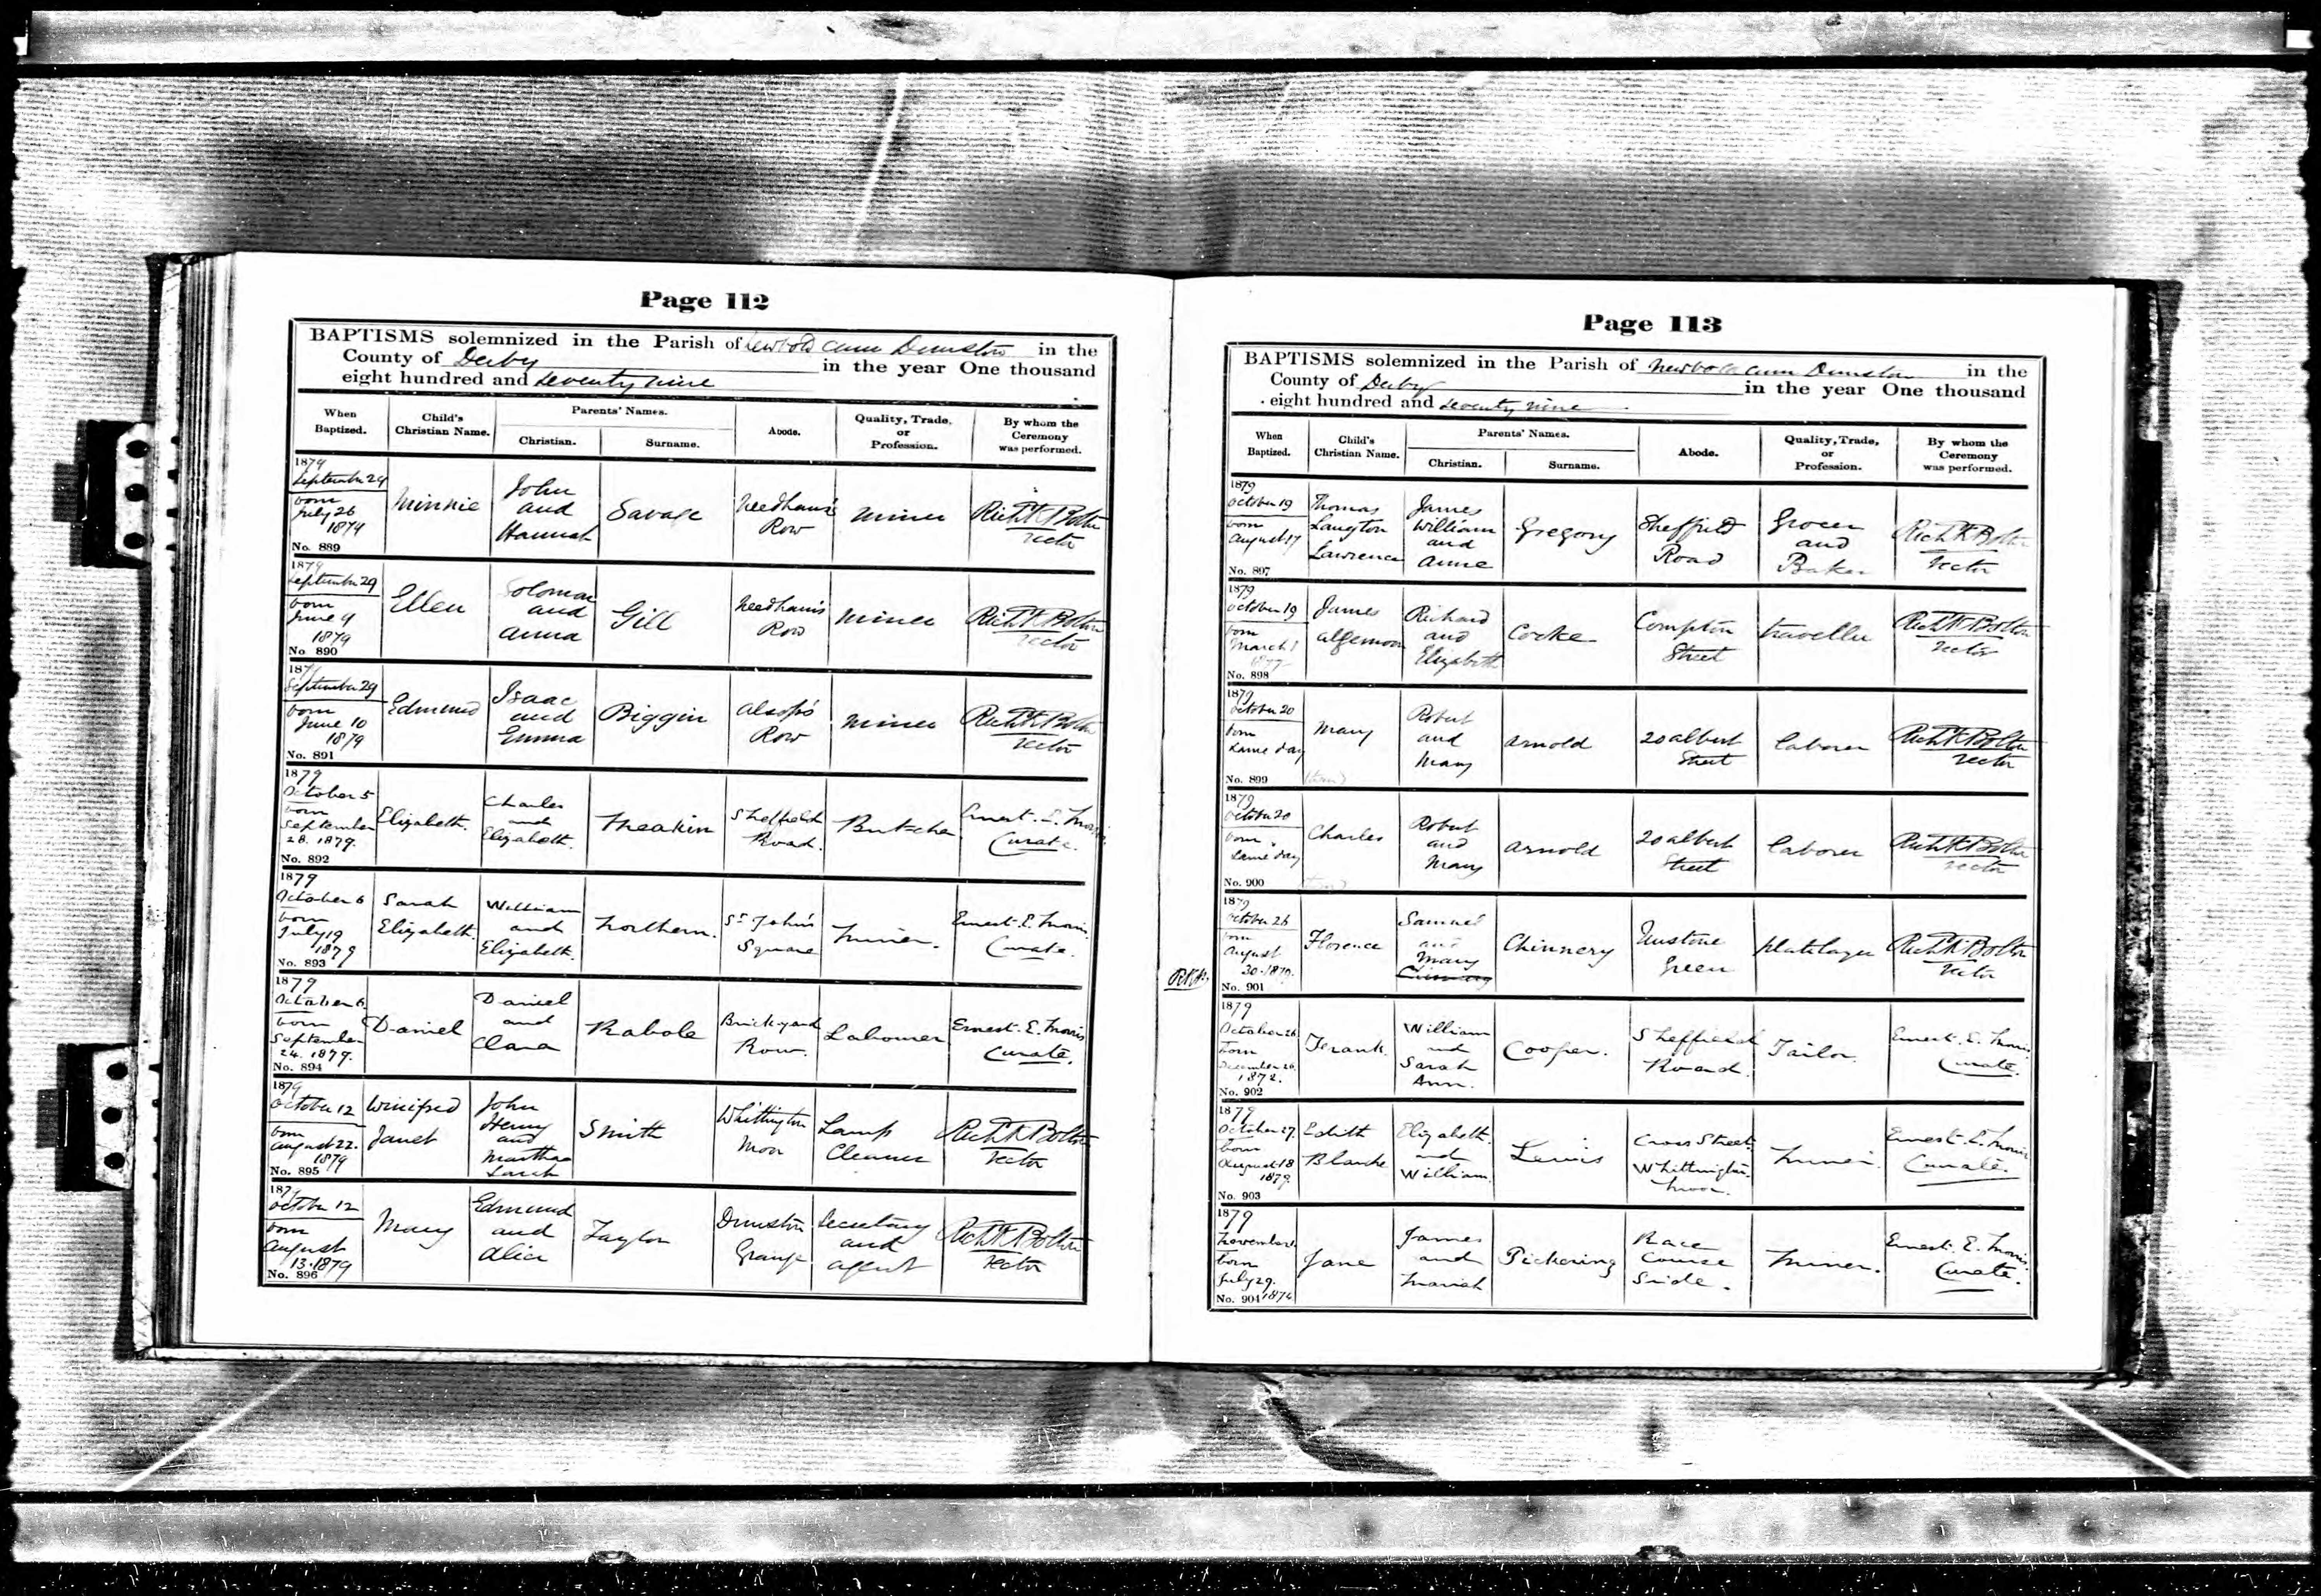 Page 112
BAPTISMS solemnized in the Parish of Newbold cum Dunston in the
County of Derby in the year One thousand
eight hundred and seventy nine
When Baptized. Child's Christian Name. Parents' Names. Christian. Surname. Abode. Quality, Trade, or Profession. By whom the Ceremony was performed.
1879 September 29 born July 26 1879 No. 889 Minnie John and Hannah Savage Needham's Row Miner Rector
1879 September 29 born June 9 1879 No 890 Ellen Solomon and Anna Gill Needham's Row Miner Rector
September 29 born June 10 1879 No. 891 Edmund Isaac and Emma Biggin Alsop's Row Miner Rector
1879 October 5 born September 28. 1879. No. 892 Elizabeth. Charles and Elizabeth. Theakin Sheffield Road. Butcher Ernest. E. Morris. Curate.
1879 October 6 born July 19 1879 No. 893 Sarah Elizabeth. William and Elizabeth. Northern. St John's Square Miner. Ernest. E. Morris. Curate.
1879 October 6. born September 24. 1879. No. 894 Daniel Daniel and Clara Rabole Brickyard Row. Labourer Ernest. E. Morris Curate.
1879 October 12 born August 22. 1879 No. 895 Winifred Janet John Henry and Martha Sarah Smith Whittington Moor Lamp Cleaner Rector
October 12 born August 13. 1879 No. 896 Mary Edmund and Alice Taylor Dunston Grange Secretary and agent Rector
Page 113
BAPTISMS solemnized in the Parish of Newbold cum Dunston in the
County of Derby in the year One thousand
eight hundred and seventy nine
When Baptized. Child's Christian Name. Parents' Names. Christian. Surname. Abode. Quality, Trade, or Profession. By whom the Ceremony was performed.
1879 October 19 born August 17 No. 897 Thomas Langton Lawrence James William and Anne Gregory Sheffield Road Grocer and Baker Rector
1879 October 19 born March 1 No. 898 James Algernon Richard and Elizabeth Cocke Compton Street traveller Rector
1879 October 20 born same day No. 899 Mary Robert and Mary Arnold 20 Albert Street laborer Rector
1879 October 20 born same day No. 900 Charles Robert and Mary Arnold 20 Albert Street laborer Rector
1879 October 26 born August 30. 1879. No. 901 Florence Samuel and Mary Chinnery Chinnery Unstone Green platelayer Rector
1879 October 26 born December 26. 1872. No. 902 Frank. William and Sarah Ann. Cooper. Sheffield Road. Tailor. Ernest. E. Morris. Curate.
1879 October 27. born August 18 1879. No. 903 Edith Blanche Elizabeth. and William. Lewis Cross Street. Whittington. Moor. Miner. Ernest. E. Morris Curate.
1879 November born July 29. 1874 No. 904 Jane James and Mariah Pickering Race Course Side. Miner. Ernest. E. Morris. Curate.